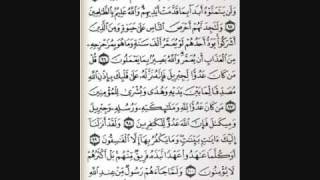 وَلَن يَتَمَنَّوْهُ أَبَدًا بِمَا قَدَّمَتْ أَيْدِيهِمْ وَاللَّهُ عَلِيمٌ بِالظَّالِمِينَ
٩٥ وَلَتَجِدَنَّهُمْ أَحْرَصَ النَّاسِ عَلَىٰ حَيَوٰةٍ وَمِنَ الَّذِينَ
أَشْرَكُوا يَوَدُّ أَحَدُهُمْ لَوْ يُعَمَّرُ أَلْفَ سَنَةٍ وَمَا هُوَ بِمُزَحْزِحِهِ
مِنَ الْعَذَابِ أَن يُعَمَّرَ وَاللَّهُ بَصِيرٌ بِمَا يَعْمَلُونَ ٩٦ قُلْ
مَن كَانَ عَدُوًّا لِّجِبْرِيلَ فَإِنَّهُ نَزَّلَهُ عَلَىٰ قَلْبِكَ بِإِذْنِ اللَّهِ
مُصَدِّقًا لِّمَا بَيْنَ يَدَيْهِ وَهُدًى وَبُشْرَىٰ لِلْمُؤْمِنِينَ
٩٧ مَن كَانَ عَدُوًّا لِّلَّهِ وَمَلَٰئِكَتِهِ وَرُسُلِهِ وَجِبْرِيلَ
وَمِيكَىٰلَ فَإِنَّ اللَّهَ عَدُوٌّ لِّلْكَافِرِينَ ٩٨ وَلَقَدْ أَنزَلْنَا
إِلَيْكَ ءَايَٰتٍ بَيِّنَٰتٍ وَمَا يَكْفُرُ بِهَا إِلَّا الْفَاسِقُونَ ٩٩
أَوَكُلَّمَا عَٰهَدُوا عَهْدًا نَّبَذَهُ فَرِيقٌ مِّنْهُم بَلْ أَكْثَرُهُمْ
لَا يُؤْمِنُونَ ١٠٠ وَلَمَّا جَاءَهُمْ رَسُولٌ مِّنْ عِندِ اللَّهِ